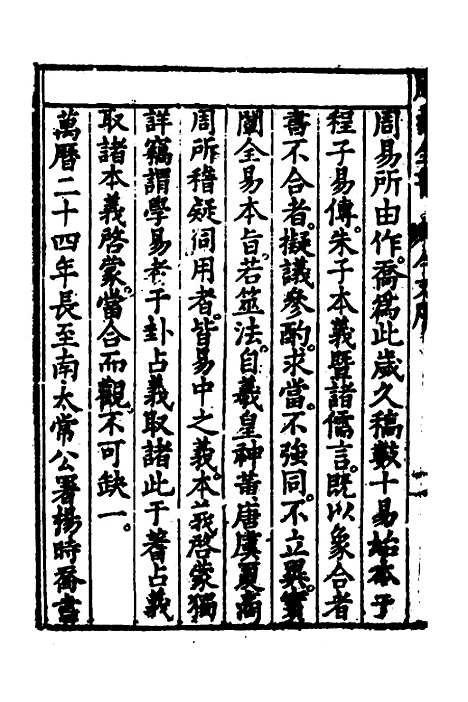 周易所由作。喬爲此歲久稿數十易始本于
程子易傳。朱子本義暨諸儒言。既以象合者
書不合者。擬議參酌。求當。不強同。不立異。實
闡全易本旨。若筮法。自羲皇神蓍。唐虞夏商
周所稽疑伺用者。皆易中之義。本義啓蒙獨
詳竊謂學易者于卦占義取諸此于蓍占義
取諸本義啓蒙。當合而觀。不可缺一。
萬曆二十四年長至南太常公署楊時喬書